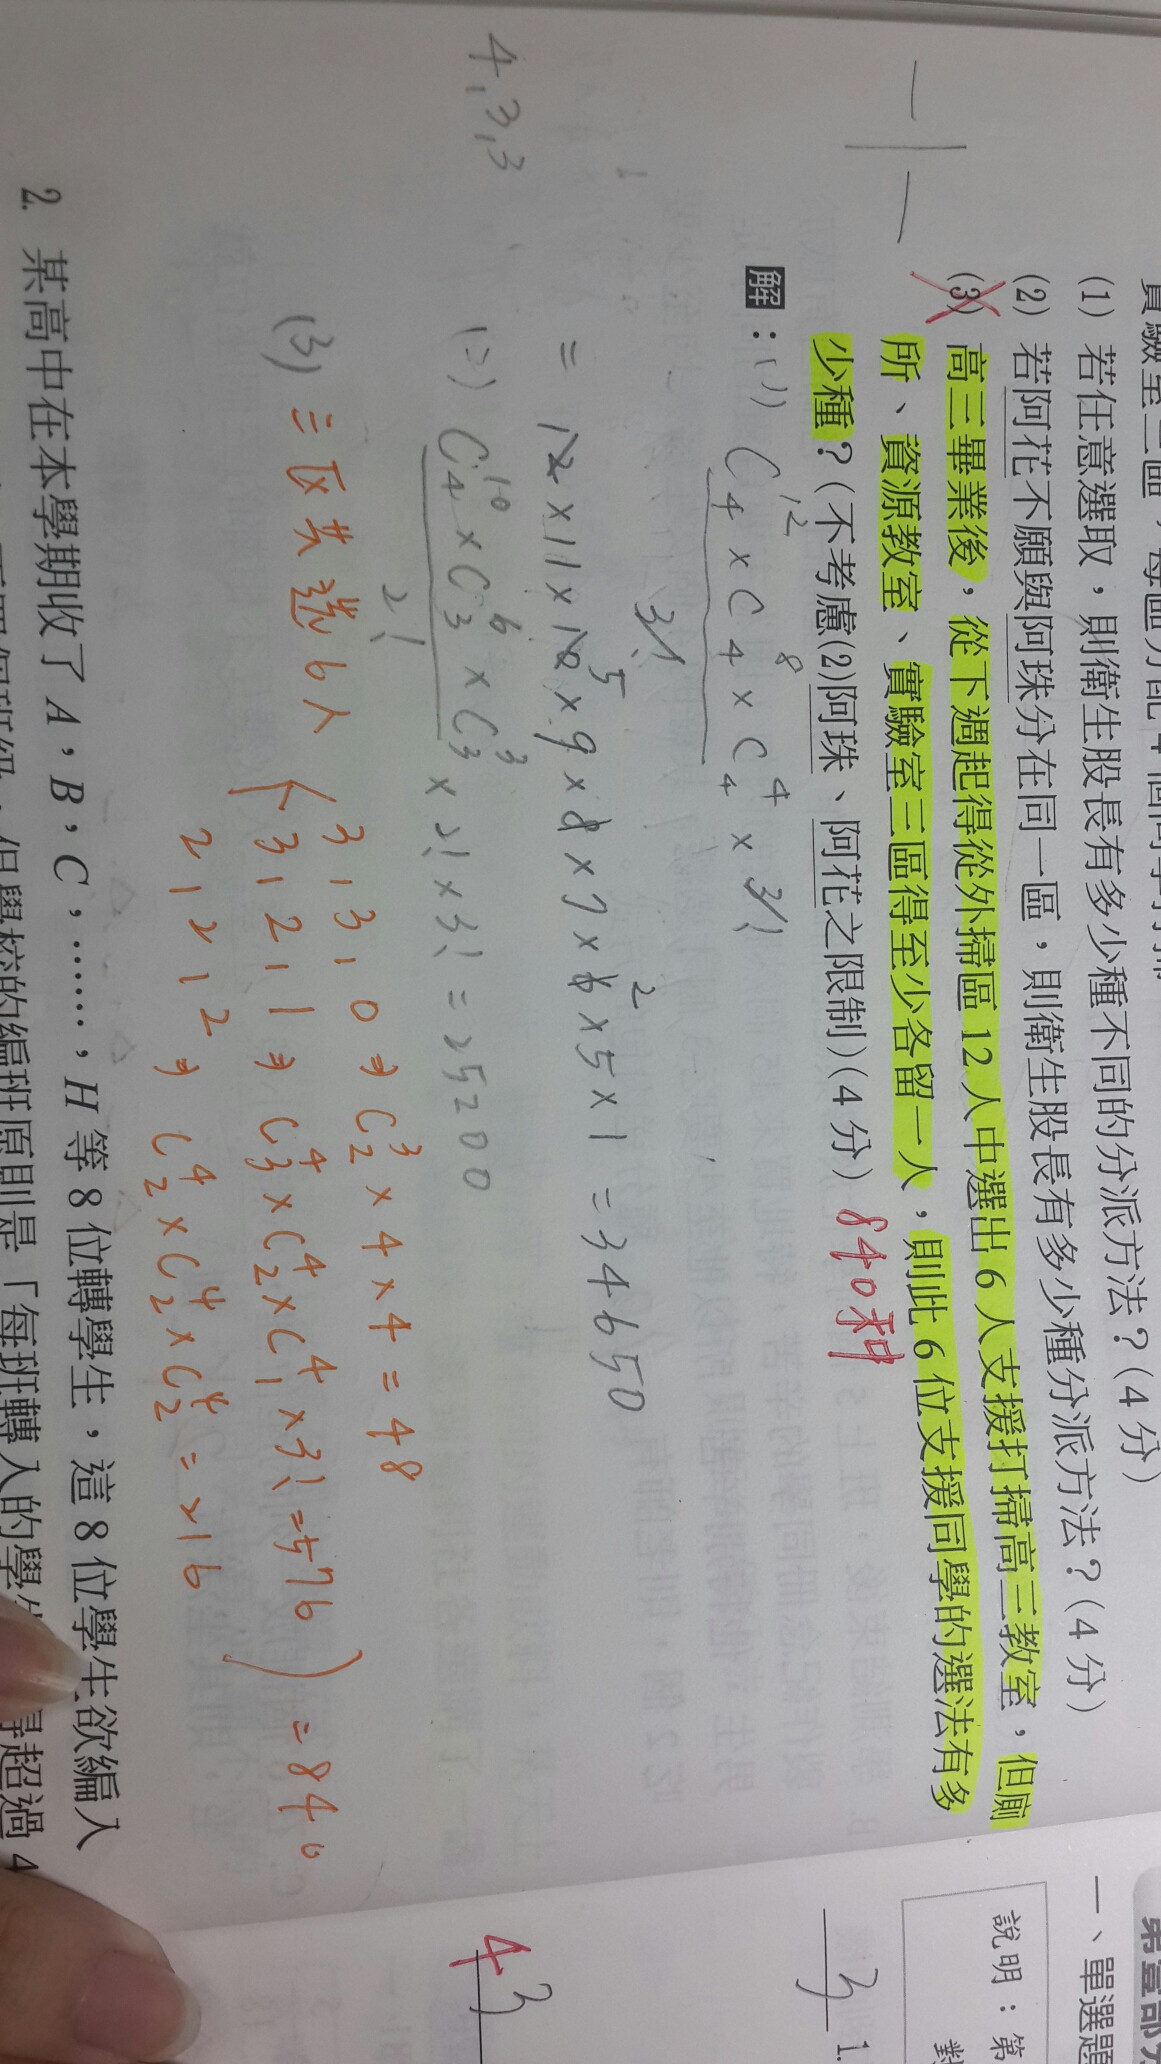 實驗室三區，每區分配4個同學打掃
(1) 若任意選取，則衛生股長有多少種不同的分派方法？(4分)
(2) 若阿花不願與阿珠分在同一區，則衛生股長有多少種分派方法？(4分)
(3) 高三畢業後，從下週起得從外掃區12人中選出6人支援打掃高三教室，但廁
所、資源教室、實驗室三區得至少各留一人，則此6位支援同學的選法有多
少種？(不考慮(2)阿珠、阿花之限制)(4分) 840種
解：(1) C¹²₄×C⁸₄×C⁴₄ × 3!
3!
= 12×11×10×9×8×7×6×5×1 = 34650
5 2
4,3,3
(2) C¹⁰₄×C⁶₃×C³₃ × 2!×3! = 25200
2!
(3) 三區共選6人
3,3,0 ⇒ C³₂×4×4=48
3,2,1 ⇒ C⁴₃×C⁴₂×C⁴₁×3!=576
2,2,2 ⇒ C⁴₂×C⁴₂×C⁴₂=216
=840
2. 某高中在本學期收了A，B，C，……，H等8位轉學生，這8位學生欲編入
班級，但學校的編班原則是「每班轉入的學
得超過4
第壹部分
一、單選題
說明：第
對
3 1.
4 3